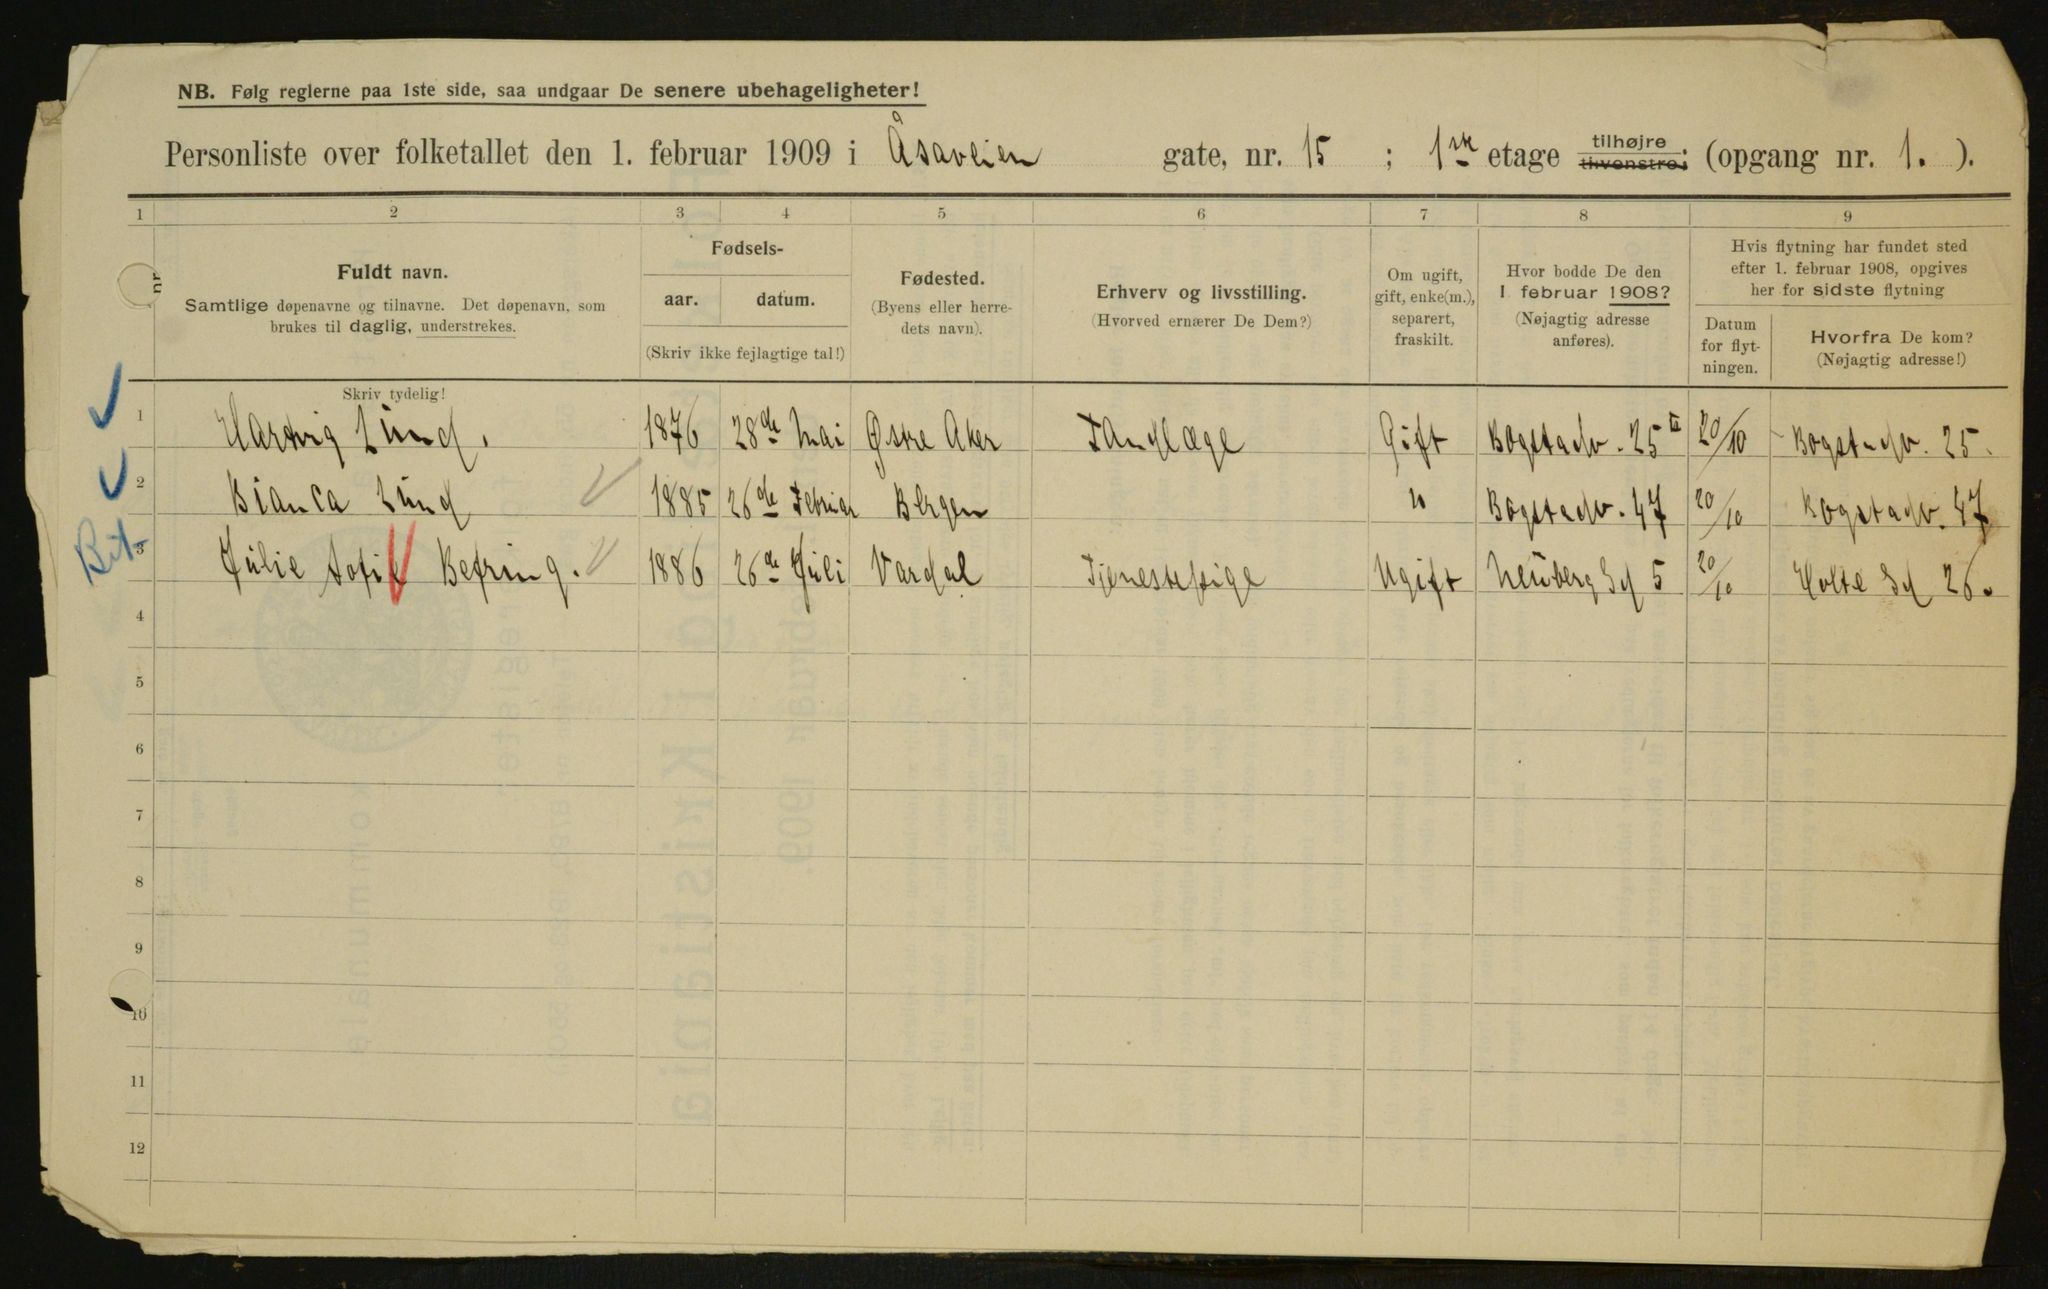 NB. Følg reglerne paa 1ste side, saa undgaar De senere ubehageligheter!
Personliste over folketallet den 1. februar 1909 i Åsaveien gate, nr. 15 ; 1ste etage tilhøjre tilvenstre; (opgang nr. 1. ).
1 2 3 4 5 6 7 8 9
nr.
Fuldt navn.
Samtlige døpenavne og tilnavne. Det døpenavn, som
brukes til daglig, understrekes.
Skriv tydelig!
Fødsels-
aar. datum.
(Skriv ikke fejlagtige tal!)
Fødested.
(Byens eller herre-
dets navn).
Erhverv og livsstilling.
(Hvorved ernærer De Dem?)
Om ugift,
gift, enke(m.),
separert,
fraskilt.
Hvor bodde De den
1. februar 1908?
(Nøjagtig adresse
anføres).
Hvis flytning har fundet sted
efter 1. februar 1908, opgives
her for sidste flytning
Datum
for flyt-
ningen.
Hvorfra De kom?
(Nøjagtig adresse!)
1 Hartvig Lund. 1876 28de Mai Østre Aker Tandlæge Gift Bogstadv. 25 II 20/10 Bogstadv. 25.
2 Bianca Lund 1885 26de Februar Bergen " Bogstadv. 47 20/10 Bogstadv. 47
3 Julie Sofie Befring. 1886 26de Juli Vardal Tjenestepige Ugift Neuberg Gd 5 20/10 Holte Gd 26.
4
5
6
7
8
9
10
11
12